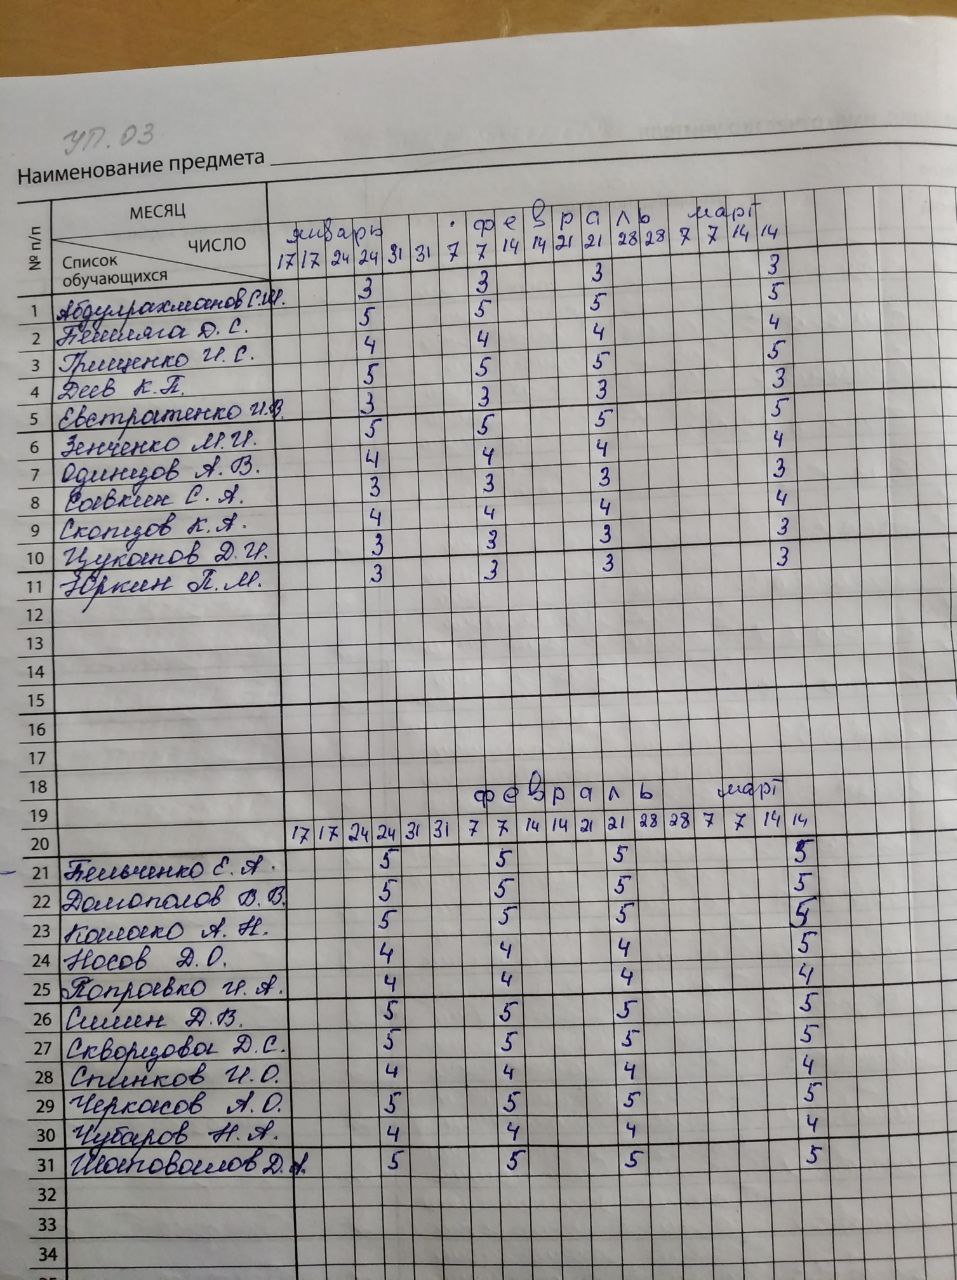 УП. 03
Наименование предмета
№ п/п МЕСЯЦ январь февраль март
Список обучающихся ЧИСЛО 17 17 24 24 31 31 7 7 14 14 21 21 28 28 7 7 14 14
1 Абдулрахманов С.Ш. 3 3 3 3
2 Бешляга Д. С. 5 5 5 5
3 Грищенко И. С. 4 4 4 4
4 Деев К.П. 5 5 5 5
5 Евстратенко И.В. 3 3 3 3
6 Зенченко М.И. 5 5 5 5
7 Одинцов А. В. 4 4 4 4
8 Савкин С. А. 3 3 3 3
9 Скопцов К.А. 4 4 4 4
10 Цуканов Д.И. 3 3 3 3
11 Юркин П.М. 3 3 3 3
12
13
14
15
16
17
18
19 февраль март
20 17 17 24 24 31 31 7 7 14 14 21 21 28 28 7 7 14 14
21 Бельченко Е. А. 5 5 5 5
22 Домополов В.В. 5 5 5 5
23 А. Н. 5 5 5
24 Носов Д.О. 4 4 4 5
25 Поправко И.А. 4 4 4 4
26 Симин Д.В. 5 5 5 5
27 Скворцова Д.С. 5 5 5 5
28 Спинков И.О. 4 4 4 4
29 Черкасов А.О. 5 5 5 5
30 Чубаров Н.А. 4 4 4 4
31 Шаповалов Д.А. 5 5 5 5
32
33
34